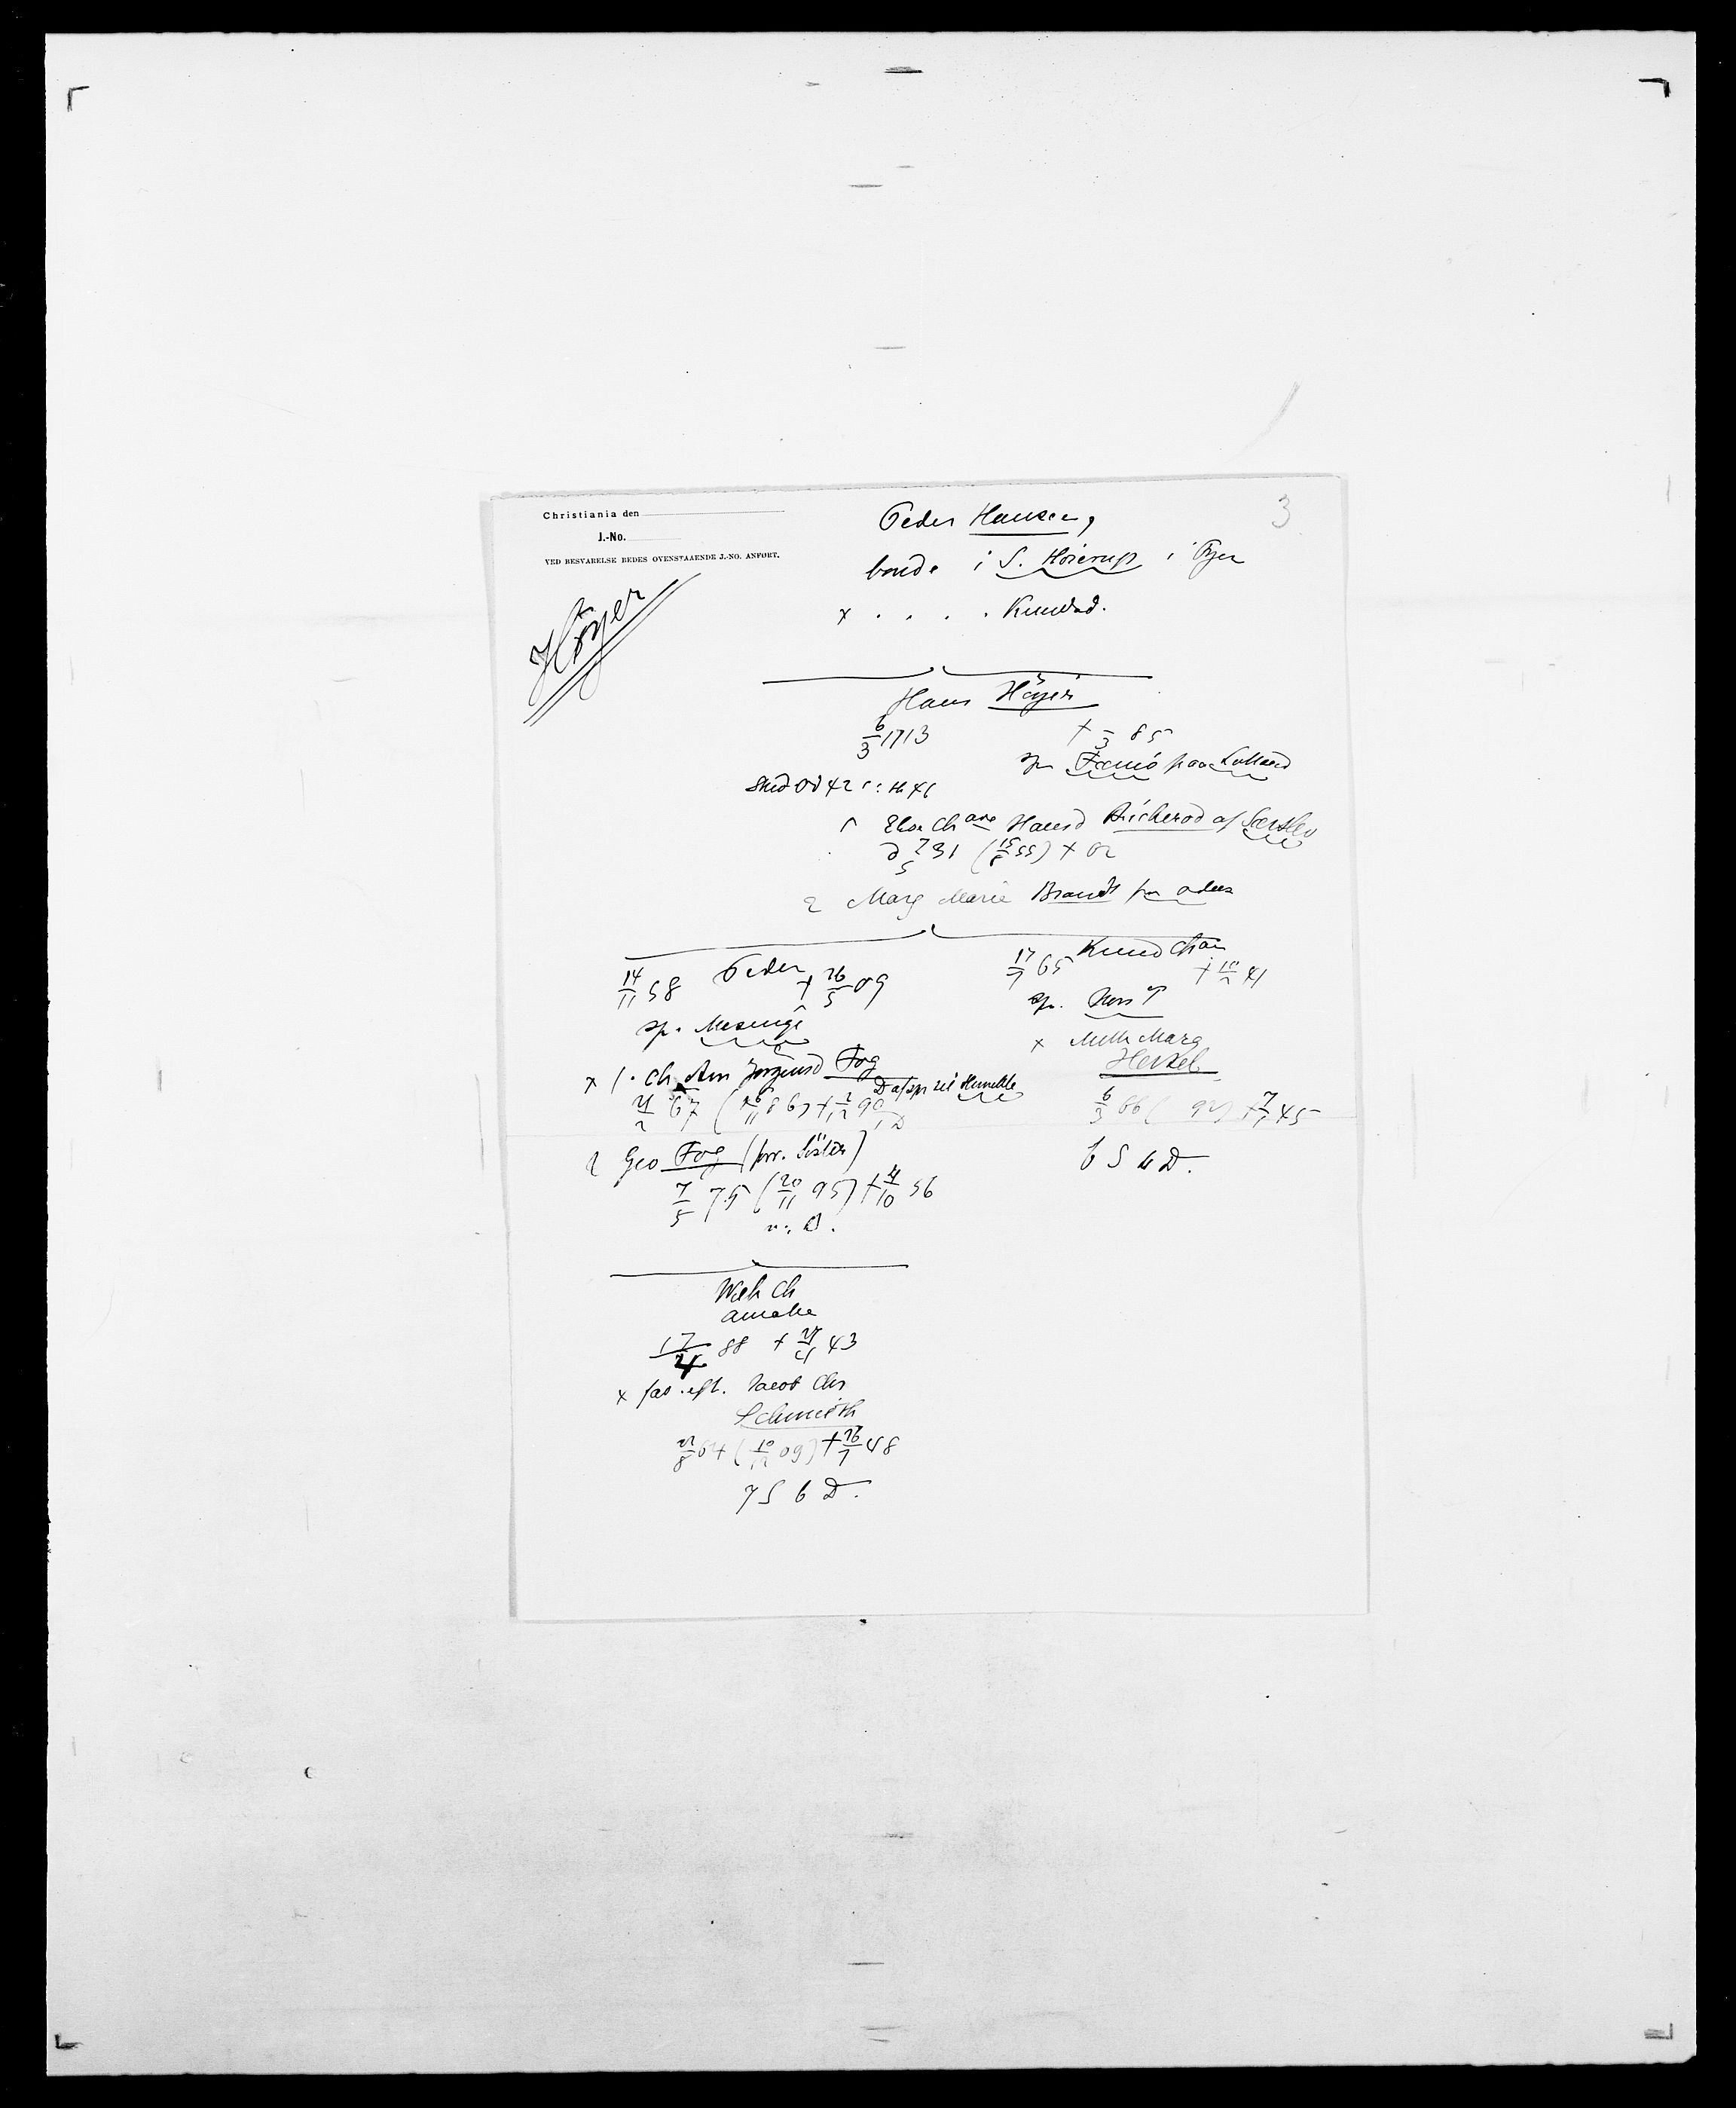 Christiania den
J.-No.
VED BESVARELSE BEDES OVENSTAAENDE J.-NO. ANFØRT.
3
Høyer
Peder Hansen,
bonde i S. Høierup i Fyen
x . . . . Knudsd.
Hans Höyer
6/3 1713 † -/3 85
sp Fæmö paa Lolland
Stud Od 42
1 Elsa Chane Hansd Bücherod af Særslev
7/5 31 (15/8 55) † 02
2 Marg Marie Brandt fra Odens
14/11 58 Peder † 26/5 09
sp. Mesinge
x 1. Ch. Ann Jörgensd Fog
D af spr til Humble
21/2 67 (26/11 86) † 2/12 90
2 Geo Fog (forr. Söster)
7/5 75 (20/11 95) † 4/10 56
17/7 65 Knud Chan † 10/2 41
sp.
x Mette Marg
Henkel
6/3 66 ( 92) † 7/1 45
6 S 4 D.
Wilh Ch
Amalie
17/4 88 † 27/4 43
x fad. eft. Jacob Chr
Schmidth
22/8 64 (10/12 09) † 26/7 48
7 S 6 D.